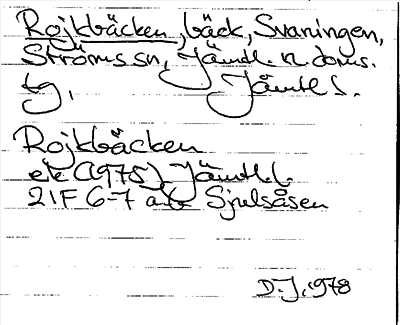 Rojkbäcken, bäck, Svaningen,
Ströms sn, Jämtl. n. doms.
tg, Jämtl l.
Rojkbäcken
ek (1975) Jämtl. l.
21F 6-7 a-b Sjulsåsen
D.J. 1978